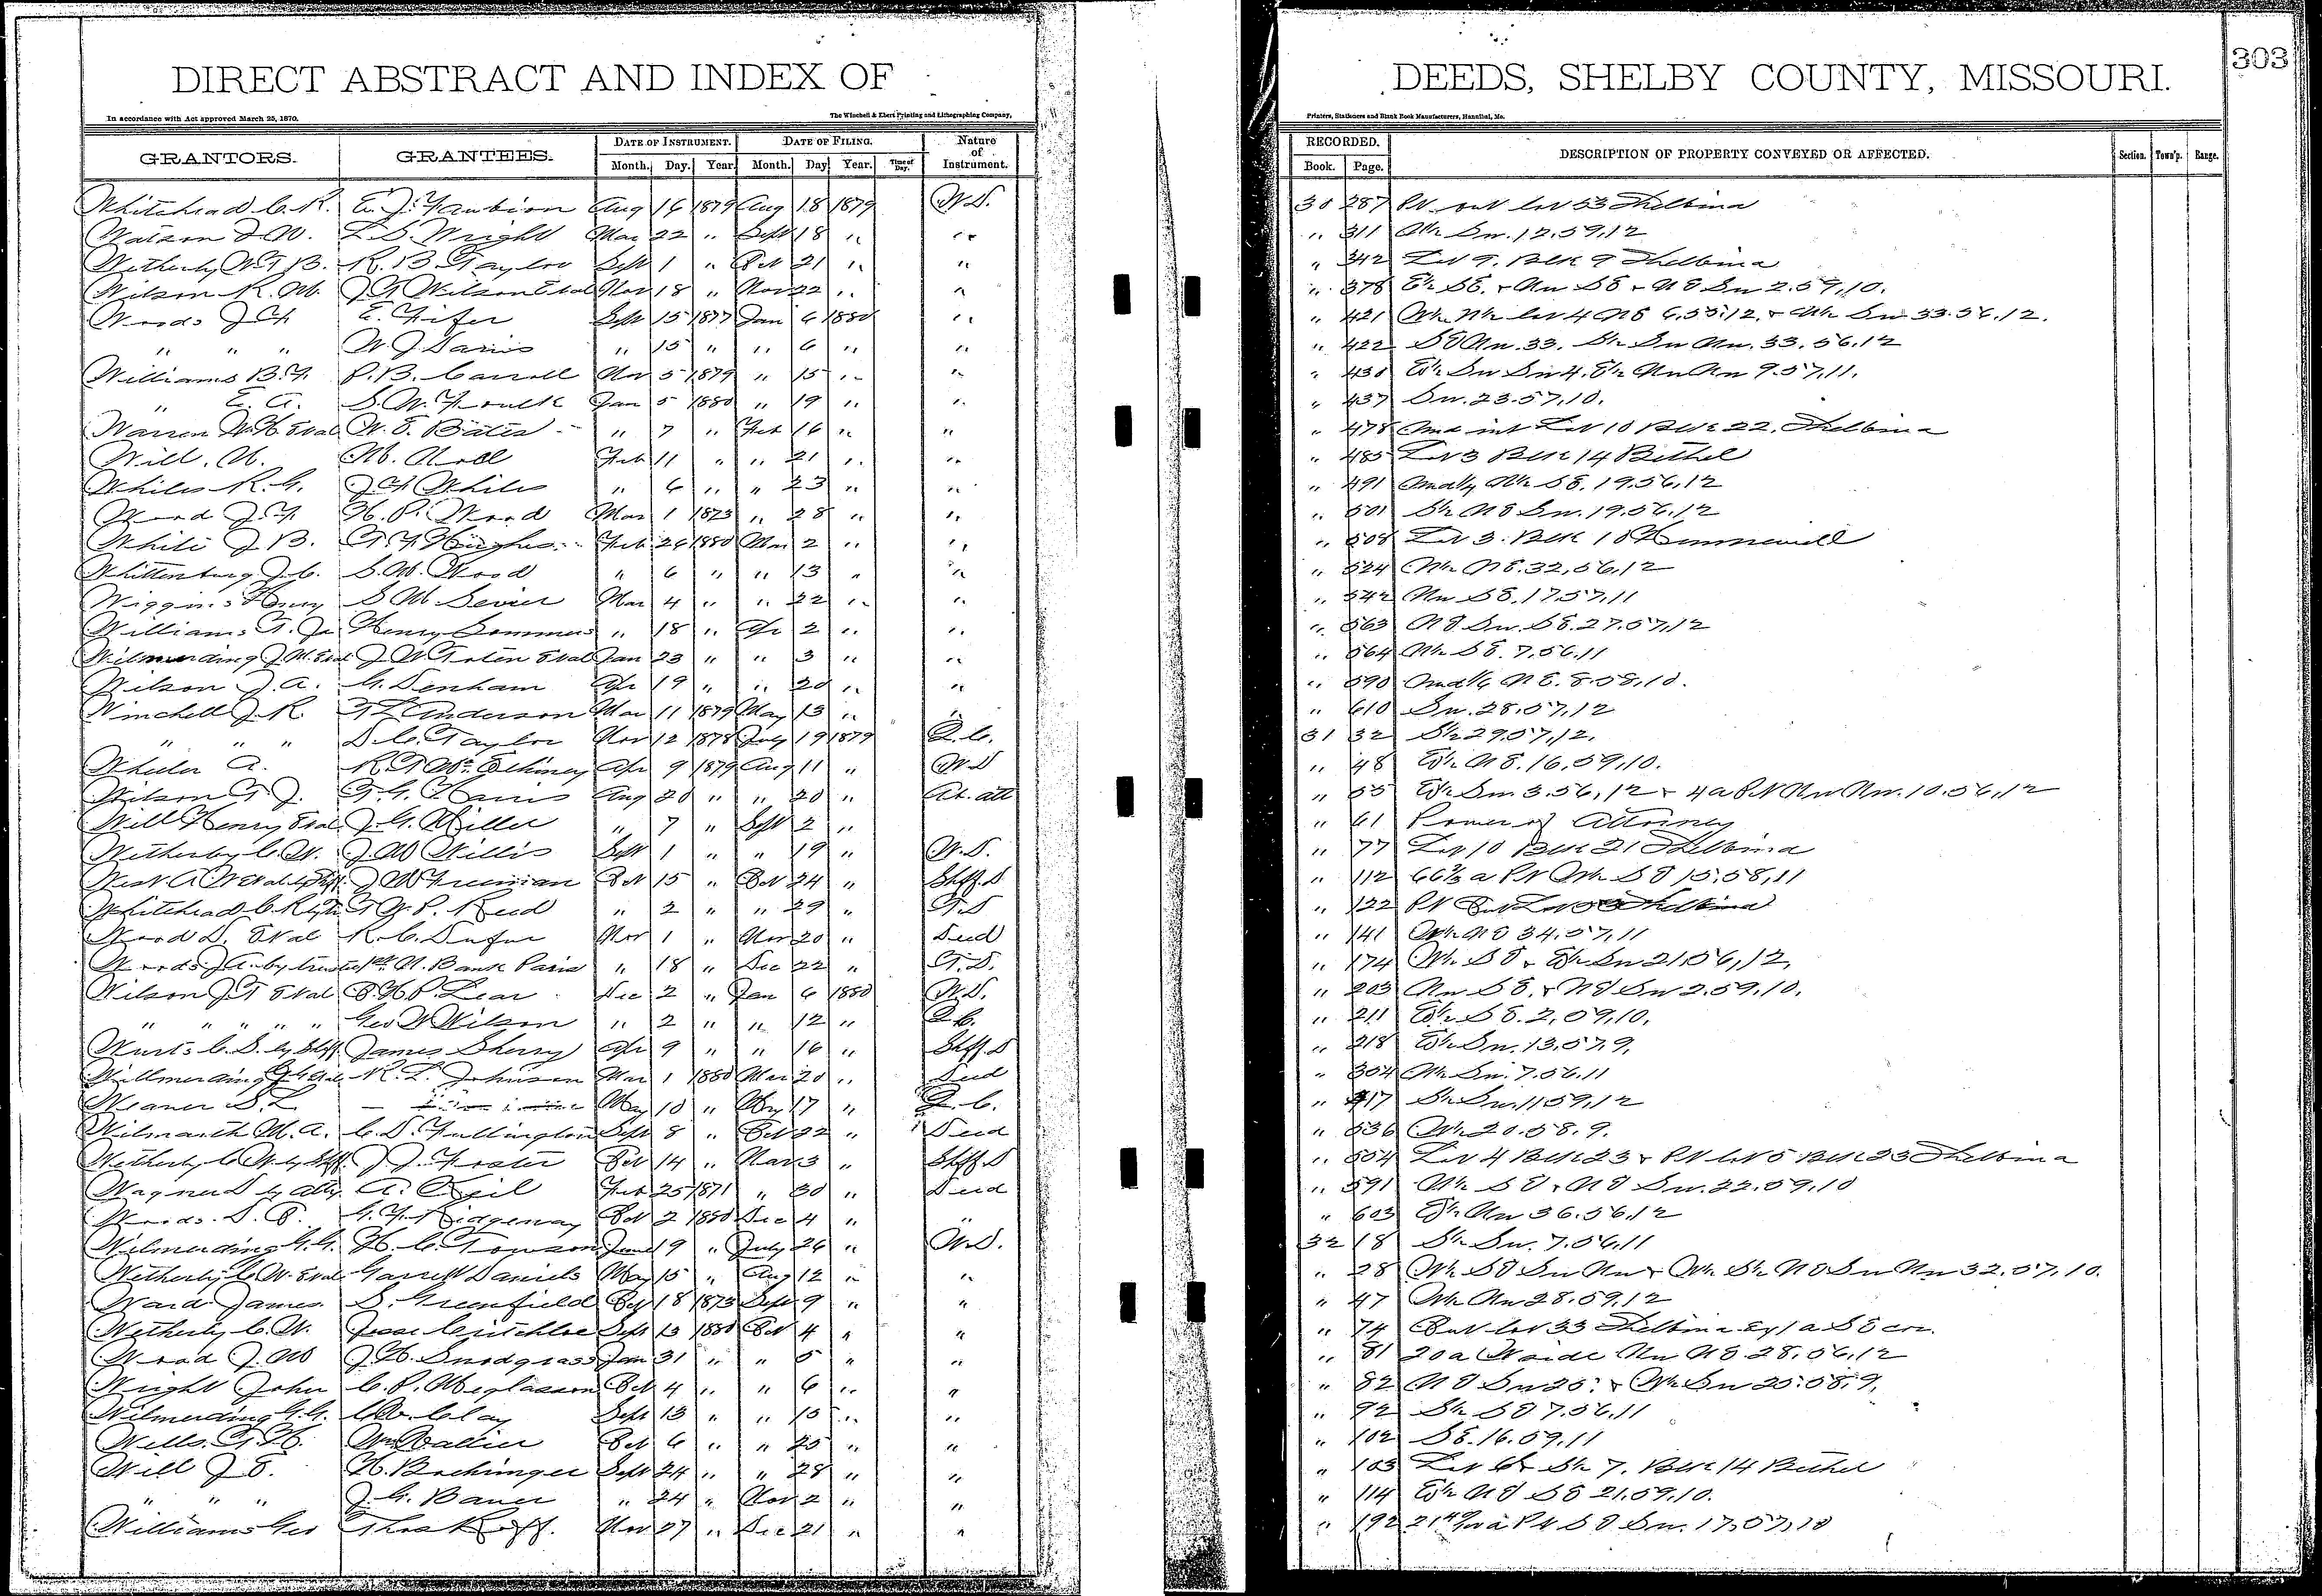 DIRECT ABSTRACT AND INDEX OF
DEEDS, SHELBY COUNTY, MISSOURI.
303
In accordance with Act approved March 25, 1870.
The Winchell & Ebert Printing and Lithographing Company,
Printers, Stationers and Blank Book Manufacturers, Hannibal, Mo.
GRANTORS. GRANTEES. DATE OF INSTRUMENT. DATE OF FILING. Nature of Instrument. RECORDED. DESCRIPTION OF PROPERTY CONVEYED OR AFFECTED. Section. Town'p. Range.
Month. Day. Year. Month. Day Year. Time of Day. Book. Page.
Whitehead C. R. E. J. Faubion Aug 16 1879 Aug 18 1879 W.D. 30 287 Pt out lot 53 Shelbina
Watson J W. L. S. Wright Mar 22 " Sept 18 " " " 311 Sw. 12.59.12
Wetherby W T B. R. B Taylor Sept 1 " Oct 21 " " " 342 Lot 9. Blk 9 Shelbina
Wilson R. M. J G Wilson Etal Nov 18 " Nov 22 " " " 378 E½ SE. & Nw SE & NE Sw 2.59.10.
Woods J H E. Fifer Sept 15 1877 Jan 6 1880 " " 421 lot 4 NE 6.55.12. & Sw 33.56.12.
" " " W. J. Davis " 15 " " 6 " " " 422 SE Nw. 33. S½ Sw Nw. 33.56.12
Williams B. F. P. B. Carroll Nov 5 1879 " 15 " " " 430 E½ Sw Sw 4. E½ Nw Nw 9.57.11.
" E. A. S. W. Foulk Jan 5 1880 " 19 " " " 437 Sw. 23.57.10.
Warren W. H. Etal W. E. Bates " 7 " Feb 16 " " " 478 Und int Lot 10 Blk 22. Shelbina
Will. M. M. Noll Feb 11 " " 21 " " " 485 Lot 3 Blk 14 Bethel
Whiles R. G. J H Whiles " 6 " " 23 " " " 491 SE. 19.56.12
Wood J. F. H. P. Wood Mar 1 1873 " 28 " " " 501 S½ NE Sw. 19.56.12
White J B. G. F. Hughes Feb 26 1880 Mar 2 " " " 508 Lot 3. Blk 10 Hunnewell
Whittenburg J. C. S. M. Wood " 6 " " 13 " " " 524 W½ NE. 32.56.12
Wiggins Henry S M Sevier Mar 4 " " 22 " " " 542 Nw SE. 17.57.11
Williams G. Jr Henry Sommers " 18 " Apr 2 " " " 563 NE Sw. SE. 27.57.12
Wilmerding J. M. Etal J W Toten Etal Jan 23 " " 3 " " " 564 SE. 7.56.11
Wilson J. A. G. Denham Apr 19 " " 20 " " " 590 NE. 8.58.10.
Winchell J. R. T L Anderson Mar 11 1879 May 13 " " " 610 Sw. 28.57.12
" " " D. C. Taylor Nov 12 1878 July 19 1879 Q.C. 31 32 S½ 29.57.12.
Wheeler A. R G McElhiney Apr 9 1879 Aug 11 " W D " 48 E½ NE. 16.59.10.
Wilson G. J. Aug 20 " " 20 " " 55 E½ Sw. 3.56.12 & 4 a Pt Nw Nw. 10.56.12
Will Henry Etal J. G. Miller " 7 " Sept 2 " " 61 Power of Attorney
Wetherby C. W. J W Willis Sept 1 " " 19 " W.D. " 77 Lot 10 Blk 21 Shelbina
West A W Etal by Shff. J W Freeman Oct 15 " Oct 24 " Shff. D " 112 66⅔ a Pt SE 15.58.11
Whitehead C. R by J. P. Reed " 2 " " 29 " T. D " 122 Pt Out Lot 53 Shelbina
Wood D. Etal R. C. Dufur Nov 1 " Nov 20 " Deed " 141 NE 34.57.11
Woods J A. by trustee 1st N. Bank Paris " 18 " Dec 22 " T. D. " 174 W½ SE & E½ Sw 21.56.12.
Wilson J. T Etal H. P. Lear Dec 2 " Jan 6 1880 W.D. " 203 Nw SE. & NE Sw 2.59.10.
" " " " Geo W Wilson " 2 " " 12 " Q.C. " 211 E½ SE. 2.59.10.
Wurts C. S. by Shff. James Sherry Apr 9 " " 16 " Shff. D " 218 E½ Sw. 13.57.9.
R. L. Johnson Mar 1 1880 Mar 20 " Deed " 304 Sw. 7.56.11
Weaner S. L May 10 " May 17 " Q.C. " 417 S½ Sw. 11.59.12
Wilmarth M. A. C. D. Fullington Sept 8 " Oct 22 " Deed " 536 W½ 20.58.9.
Wetherby C W by Shff. J J. Foster Oct 14 " Nov 3 " Shff. D " 554 Lot 4 Blk 23 & Pt lot 5 Blk 23 Shelbina
Wagner D by Atty. A. Feb 25 1871 " 30 " Deed " 591 SE & NE Sw. 22.59.10
Woods. S. P. G. F. Ridgeway Oct 2 1880 Dec 4 " " " 603 E½ Nw 36.56.12
Wilmerding G. G. H. C. Towson June 19 " July 26 " W.D. 32 18 S½ Sw. 7.56.11
Wetherby C. W. Etal Garrett Daniels May 15 " Aug 12 " " " 28 W½ SE Sw Nw & W½ S½ NE Sw Nw 32.57.10.
Ward James S. Greenfield Oct 18 1873 Sept 9 " " " 47 Nw 28.59.12
Wetherby C. W. Jesse Critchloe Sept 13 1880 Oct 4 " " " 74 Out lot 33 Shelbina Ex 1 a SE cor.
Wood J. W J. H. Snodgrass Jan 31 " " 5 " " " 81 20 a W side Nw NE 28.56.12
Wright John C. P. Meglasson Oct 4 " " 6 " " " 82 NE Sw 25. & W½ Sw 25.58.9.
Wilmerding G. G. Clay Sept 13 " " 15 " " " 92 S½ SE 7.56.11
Wells. G. H. Oct 6 " " 25 " " " 102 SE. 16.59.11
Will J. E. H. Bochinger Sept 24 " " 28 " " " 103 Lot 6 & S½ 7. Blk 14 Bethel
" " " J. G. Bauer " 24 " Nov 2 " " " 114 E½ NE SE 21.59.10.
Williams Geo Nov 27 " Dec 21 " " " 192 Pt SE Sw. 17.57.10